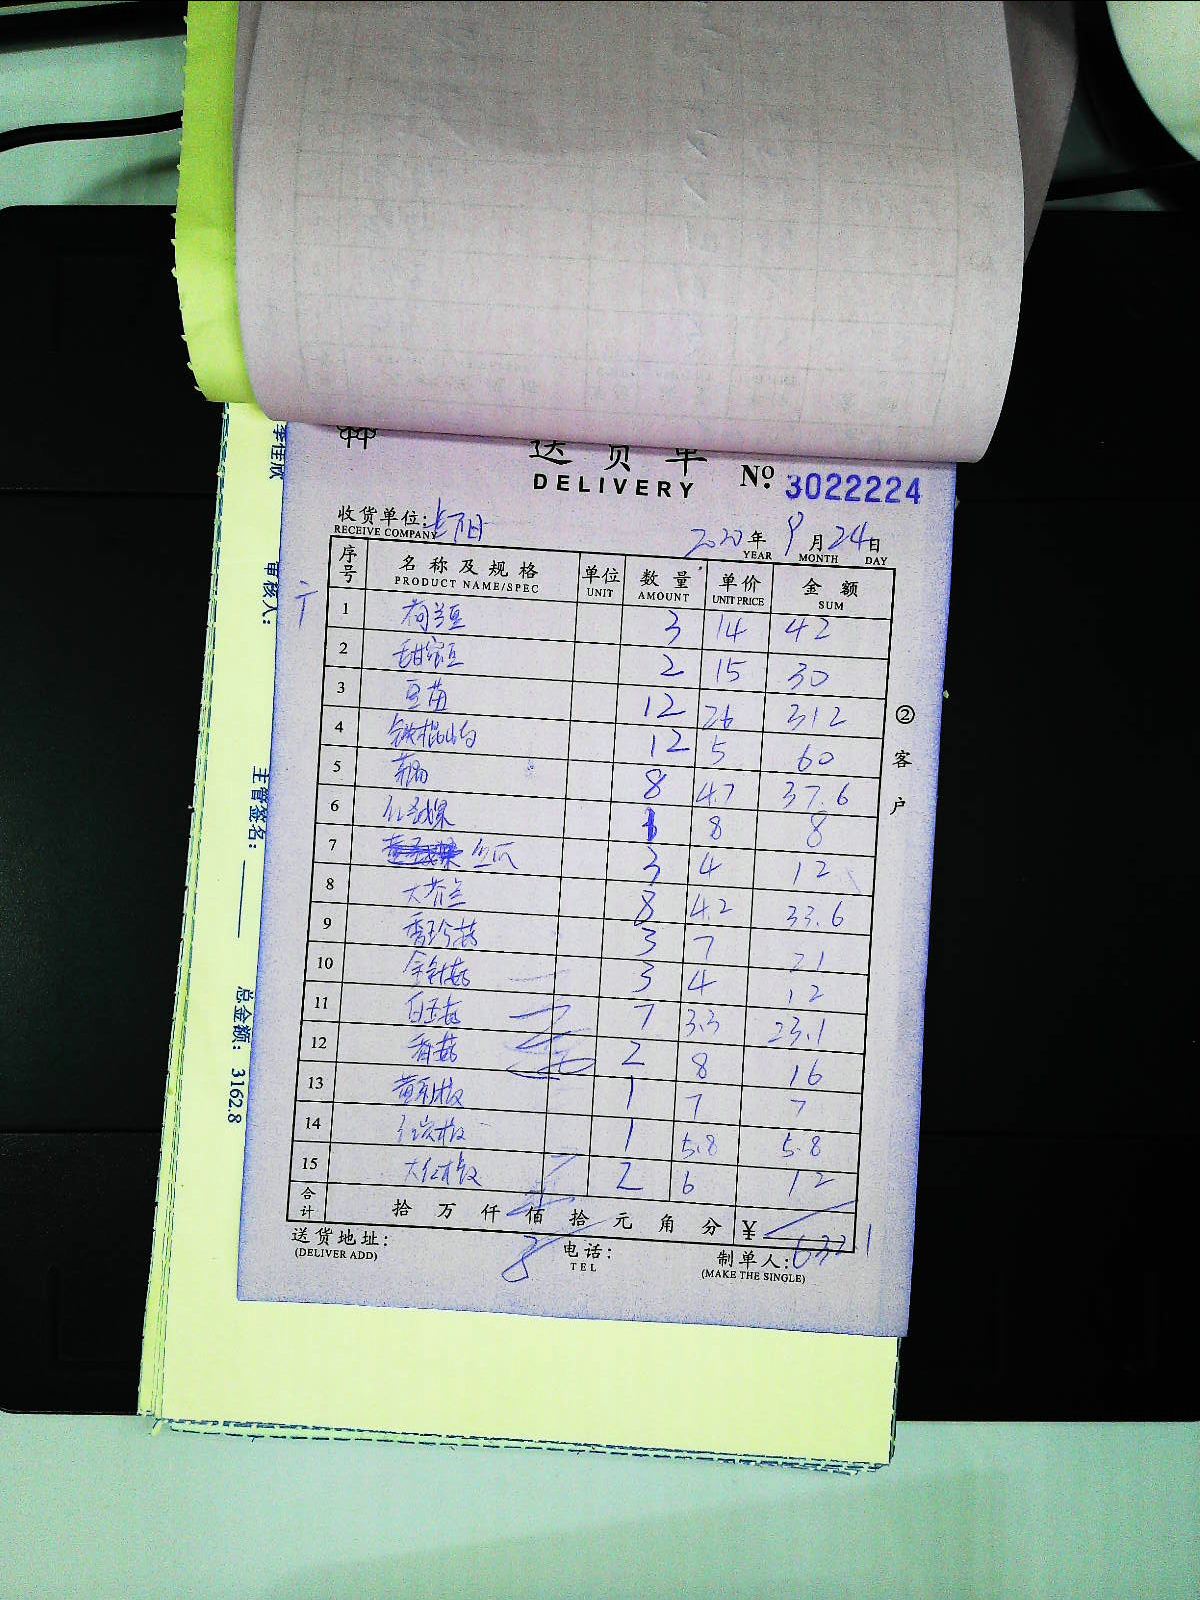 送货单
DELIVERY
No. 3022224
收货单位:
RECEIVE COMPANY
2020年9月24日
YEAR MONTH DAY
序号 名称及规格 单位 数量 单价 金额
PRODUCT NAME/SPEC UNIT AMOUNT UNIT PRICE SUM
1 荷兰豆 3 14 42
2 甜蜜豆 2 15 30
3 豆苗 12 26 312
4 铁棍山药 12 5 60
5 8 4.7 37.6
6 红圣女果 1 8 8
7 丝瓜 3 4 12
8 大芥兰 8 4.2 33.6
9 香珍菇 3 7 21
10 金针菇 3 4 12
11 白玉菇 7 3.3 23.1
12 香菇 2 8 16
13 1 7 7
14 1 5.8 5.8
15 大红椒 2 6 12
合计 拾万仟佰拾元角分 ¥ 632.1
送货地址: 电话: 制单人:
(DELIVER ADD) TEL (MAKE THE SINGLE)
②客户
李佳欣
审核人:
主管签名:
总金额: 3162.8